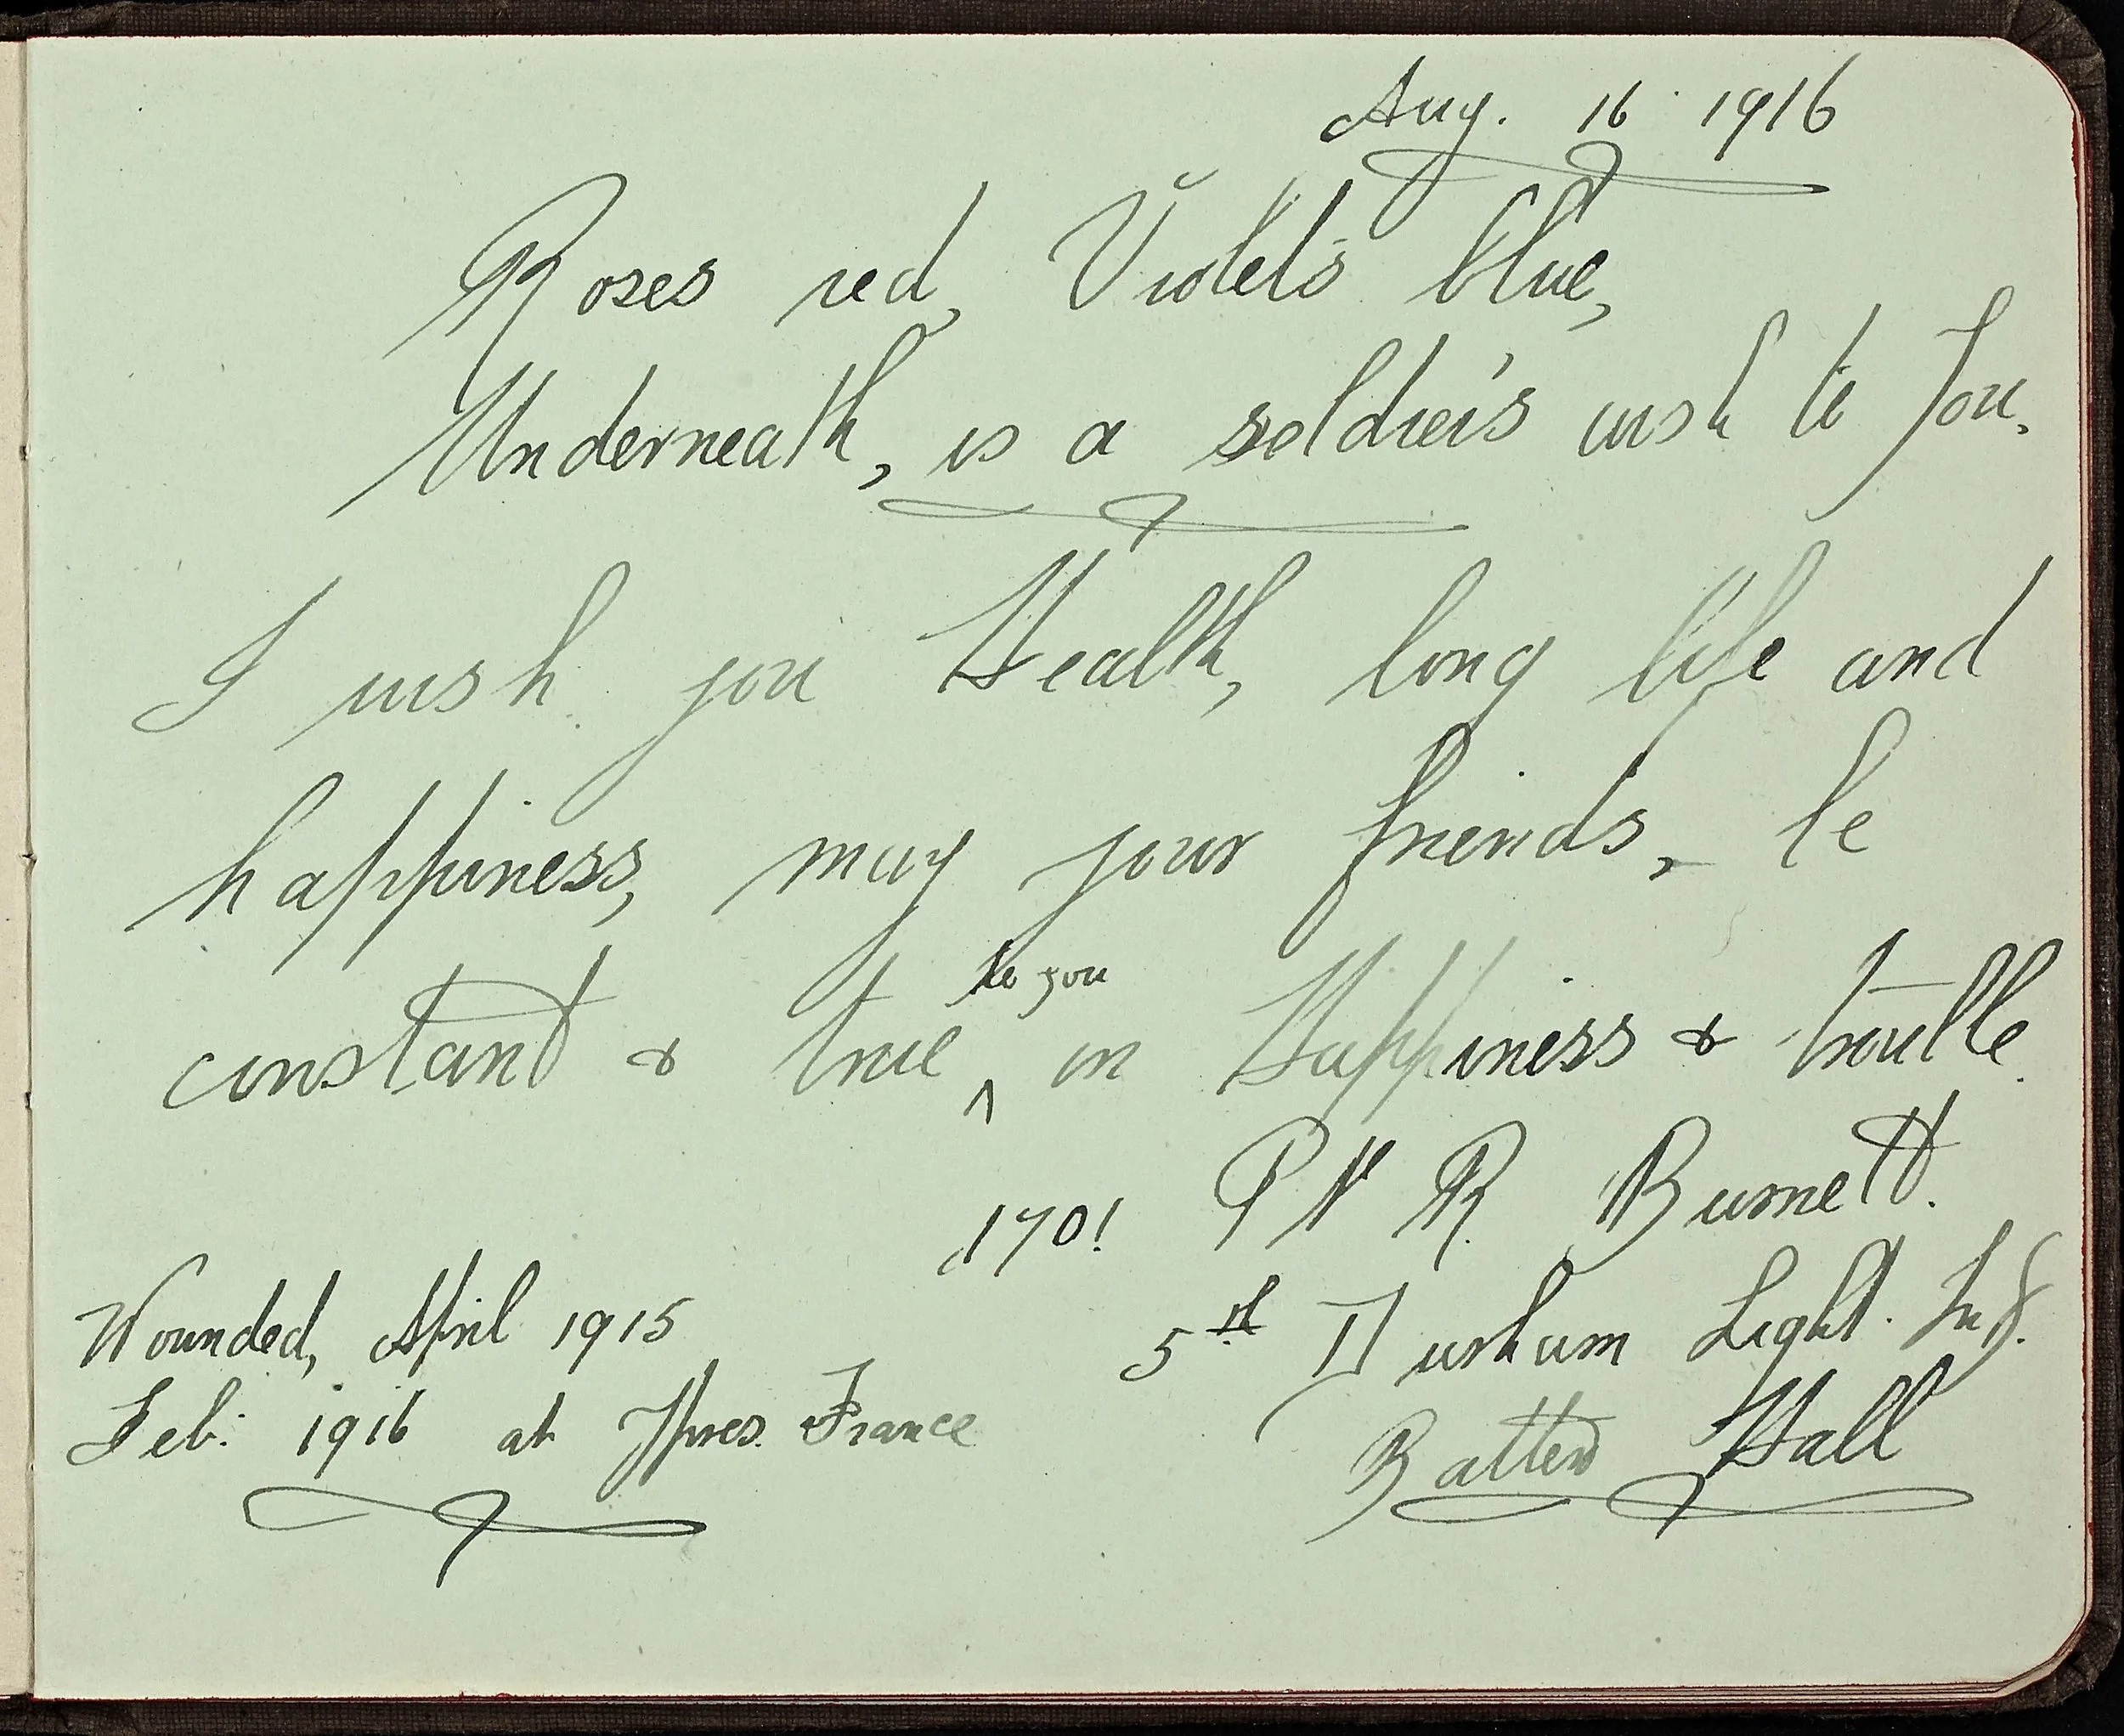 Aug. 16 1916
Roses red, Violets blue,
Underneath, is a soldier's wish to you.
I wish you Health, long life and
happiness, may your friends, be
constant & true to you in Happiness & trouble.
1701 Pte R. Burnett.
Wounded, April 1915
5th Durham Light. Inf.
Feb: 1916 at Ypres. France
Hall